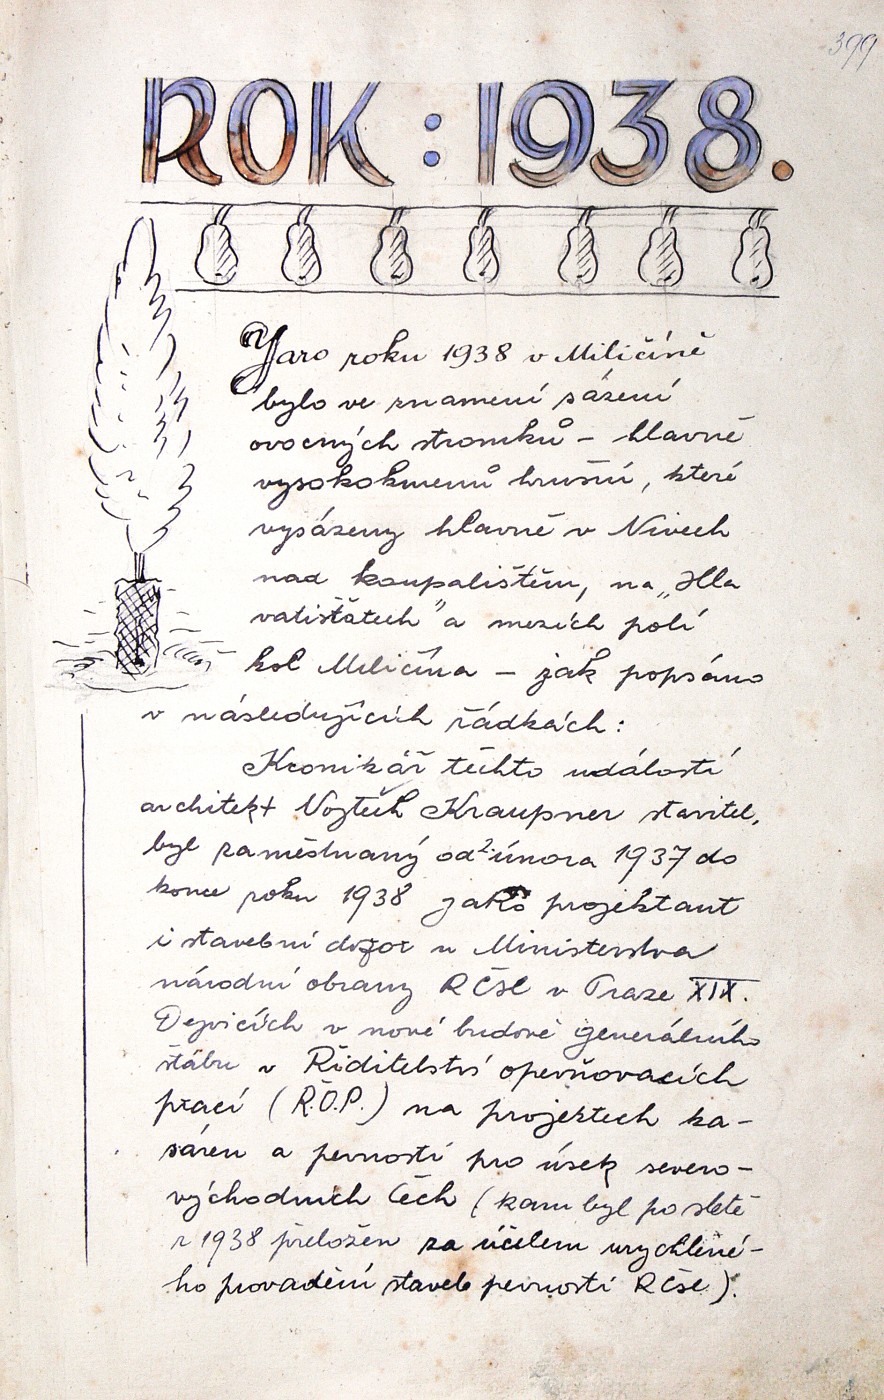 399
ROK: 1938.
Jaro roku 1938 v Miličíně
bylo ve znamení sázení
ovocných stromků – hlavně
vysokokmenů hrušní, které
vysázeny hlavně v Nivech
nad koupalištěm, na „Hla
vatištatech" a mezích polí
kol Miličína – jak popsáno
v následujících řádkách:
Kronikář těchto událostí
architekt Vojtěch Kraupner stavitel,
byl zaměstnaný od 2. února 1937 do
konce roku 1938 jako projektant
i stavební dozor u Ministerstva
národní obrany RČSl v Praze XIX.
Dejvicích v nové budově generálního
štábu v Ředitelství opevňovacích
prací (Ř.O.P.) na projektech ka-
sáren a pevností pro úsek severo-
východních Čech (kam byl po sletě
r 1938 přeložen za účelem urychlené-
ho provádění staveb pevností RČsl).